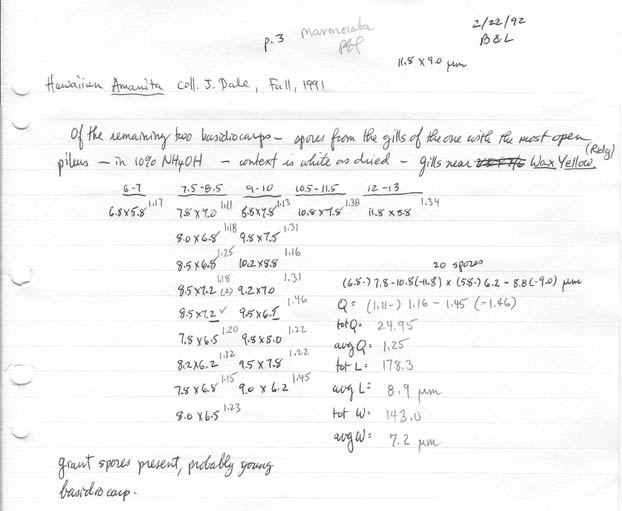 p.3 Marmorata
P&P
2/22/92
B&L
11.8 x 9.0 µm
Hawaiian Amanita coll. J. Dale, Fall, 1991
Of the remaining two basidiocarps - spores from the gills of the one with the most open
pileus - in 10% NH4OH - context is white as dried - gills near Wax Yellow. (Rdg)
6-7 7.5-8.5 9-10 10.5-11.5 12-13
6.8x5.8 1.17 7.8x7.0 1.11 8.8x7.8 1.13 10.8x7.8 1.38 11.8x8.8 1.34
8.0x6.8 1.18 9.8x7.5 1.31
8.5x6.8 1.25 10.2x8.8 1.16
8.5x7.2 1.18 (2) 9.2x7.0 1.31
8.5x7.2 ✓ 9.5x6.5 1.46
7.8x6.5 1.20 9.8x8.0 1.22
8.2x6.2 1.32 9.5x7.8 1.22
7.8x6.8 1.15 9.0x6.2 1.45
8.0x6.5 1.23
20 spores
(6.8-) 7.8-10.8 (-11.8) x (5.8-) 6.2-8.8 (-9.0) µm
Q = (1.11-) 1.16 - 1.45 (-1.46)
tot Q = 24.95
avg Q = 1.25
tot L = 178.3
avg L = 8.9 µm
tot W = 143.0
avg W = 7.2 µm
giant spores present, probably young
basidiocarp.